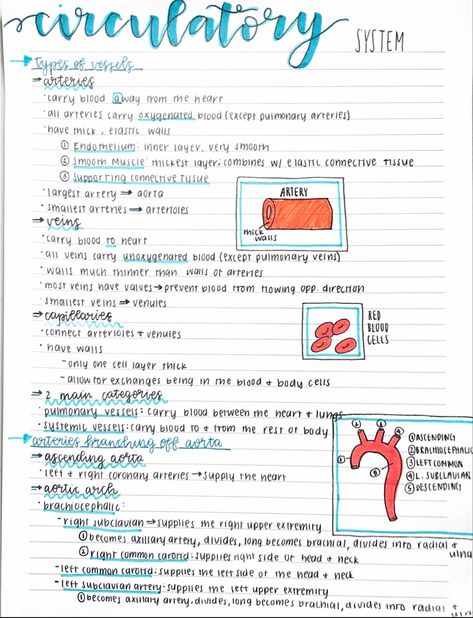 circulatory SYSTEM
→ types of vessels
→ arteries
· carry blood away from the heart
· all arteries carry oxygenated blood (except pulmonary arteries)
· have thick, elastic walls
① Endothelium: inner layer, very smooth
② Smooth Muscle: thickest layer; combines w/ elastic connective tissue
③ Supporting connective tissue
· largest artery → aorta
· smallest arteries → arterioles
ARTERY
thick walls
→ veins
· carry blood to heart
· all veins carry unoxygenated blood (except pulmonary veins)
· walls much thinner than walls of arteries
· most veins have valves → prevent blood from flowing opp. direction
· smallest veins → venules
→ capillaries
· connect arterioles & venules
· have walls
- only one cell layer thick
- allow for exchanges being in the blood & body cells
RED
BLOOD
CELLS
→ 2 main categories
· pulmonary vessels: carry blood between the heart & lungs
· systemic vessels: carry blood to & from the rest of body
→ arteries branching off aorta
→ ascending aorta
· left & right coronary arteries → supply the heart
→ aortic arch
· brachiocephalic:
① ② ③ ④ ⑤
① ASCENDING
② BRACHIOCEPHALIC
③ LEFT COMMON
④ L. SUBCLAVIAN
⑤ DESCENDING
- right subclavian → supplies the right upper extremity
① becomes axillary artery, divides, long becomes brachial, divides into radial & ulna
② right common carotid: supplies right side of head & neck
- left common carotid: supplies the left side of the head & neck
- left subclavian artery: supplies the left upper extremity
① becomes axillary artery, divides, long becomes brachial, divides into radial &